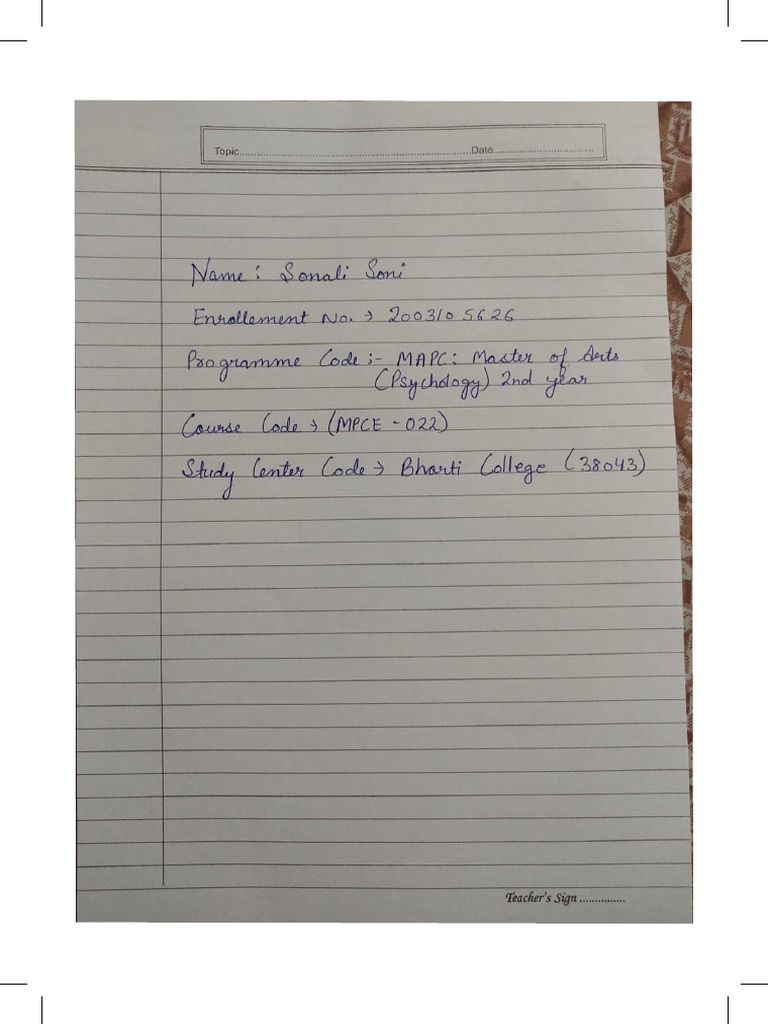 Topic..........................................................................Date................................
Name : Sonali Soni
Enrollement No. → 2003105626
Programme Code :- MAPC : Master of Arts
(Psychology) 2nd year
Course Code → (MPCE - 022)
Study Center Code → Bharti College (38043)
Teacher's Sign ...............